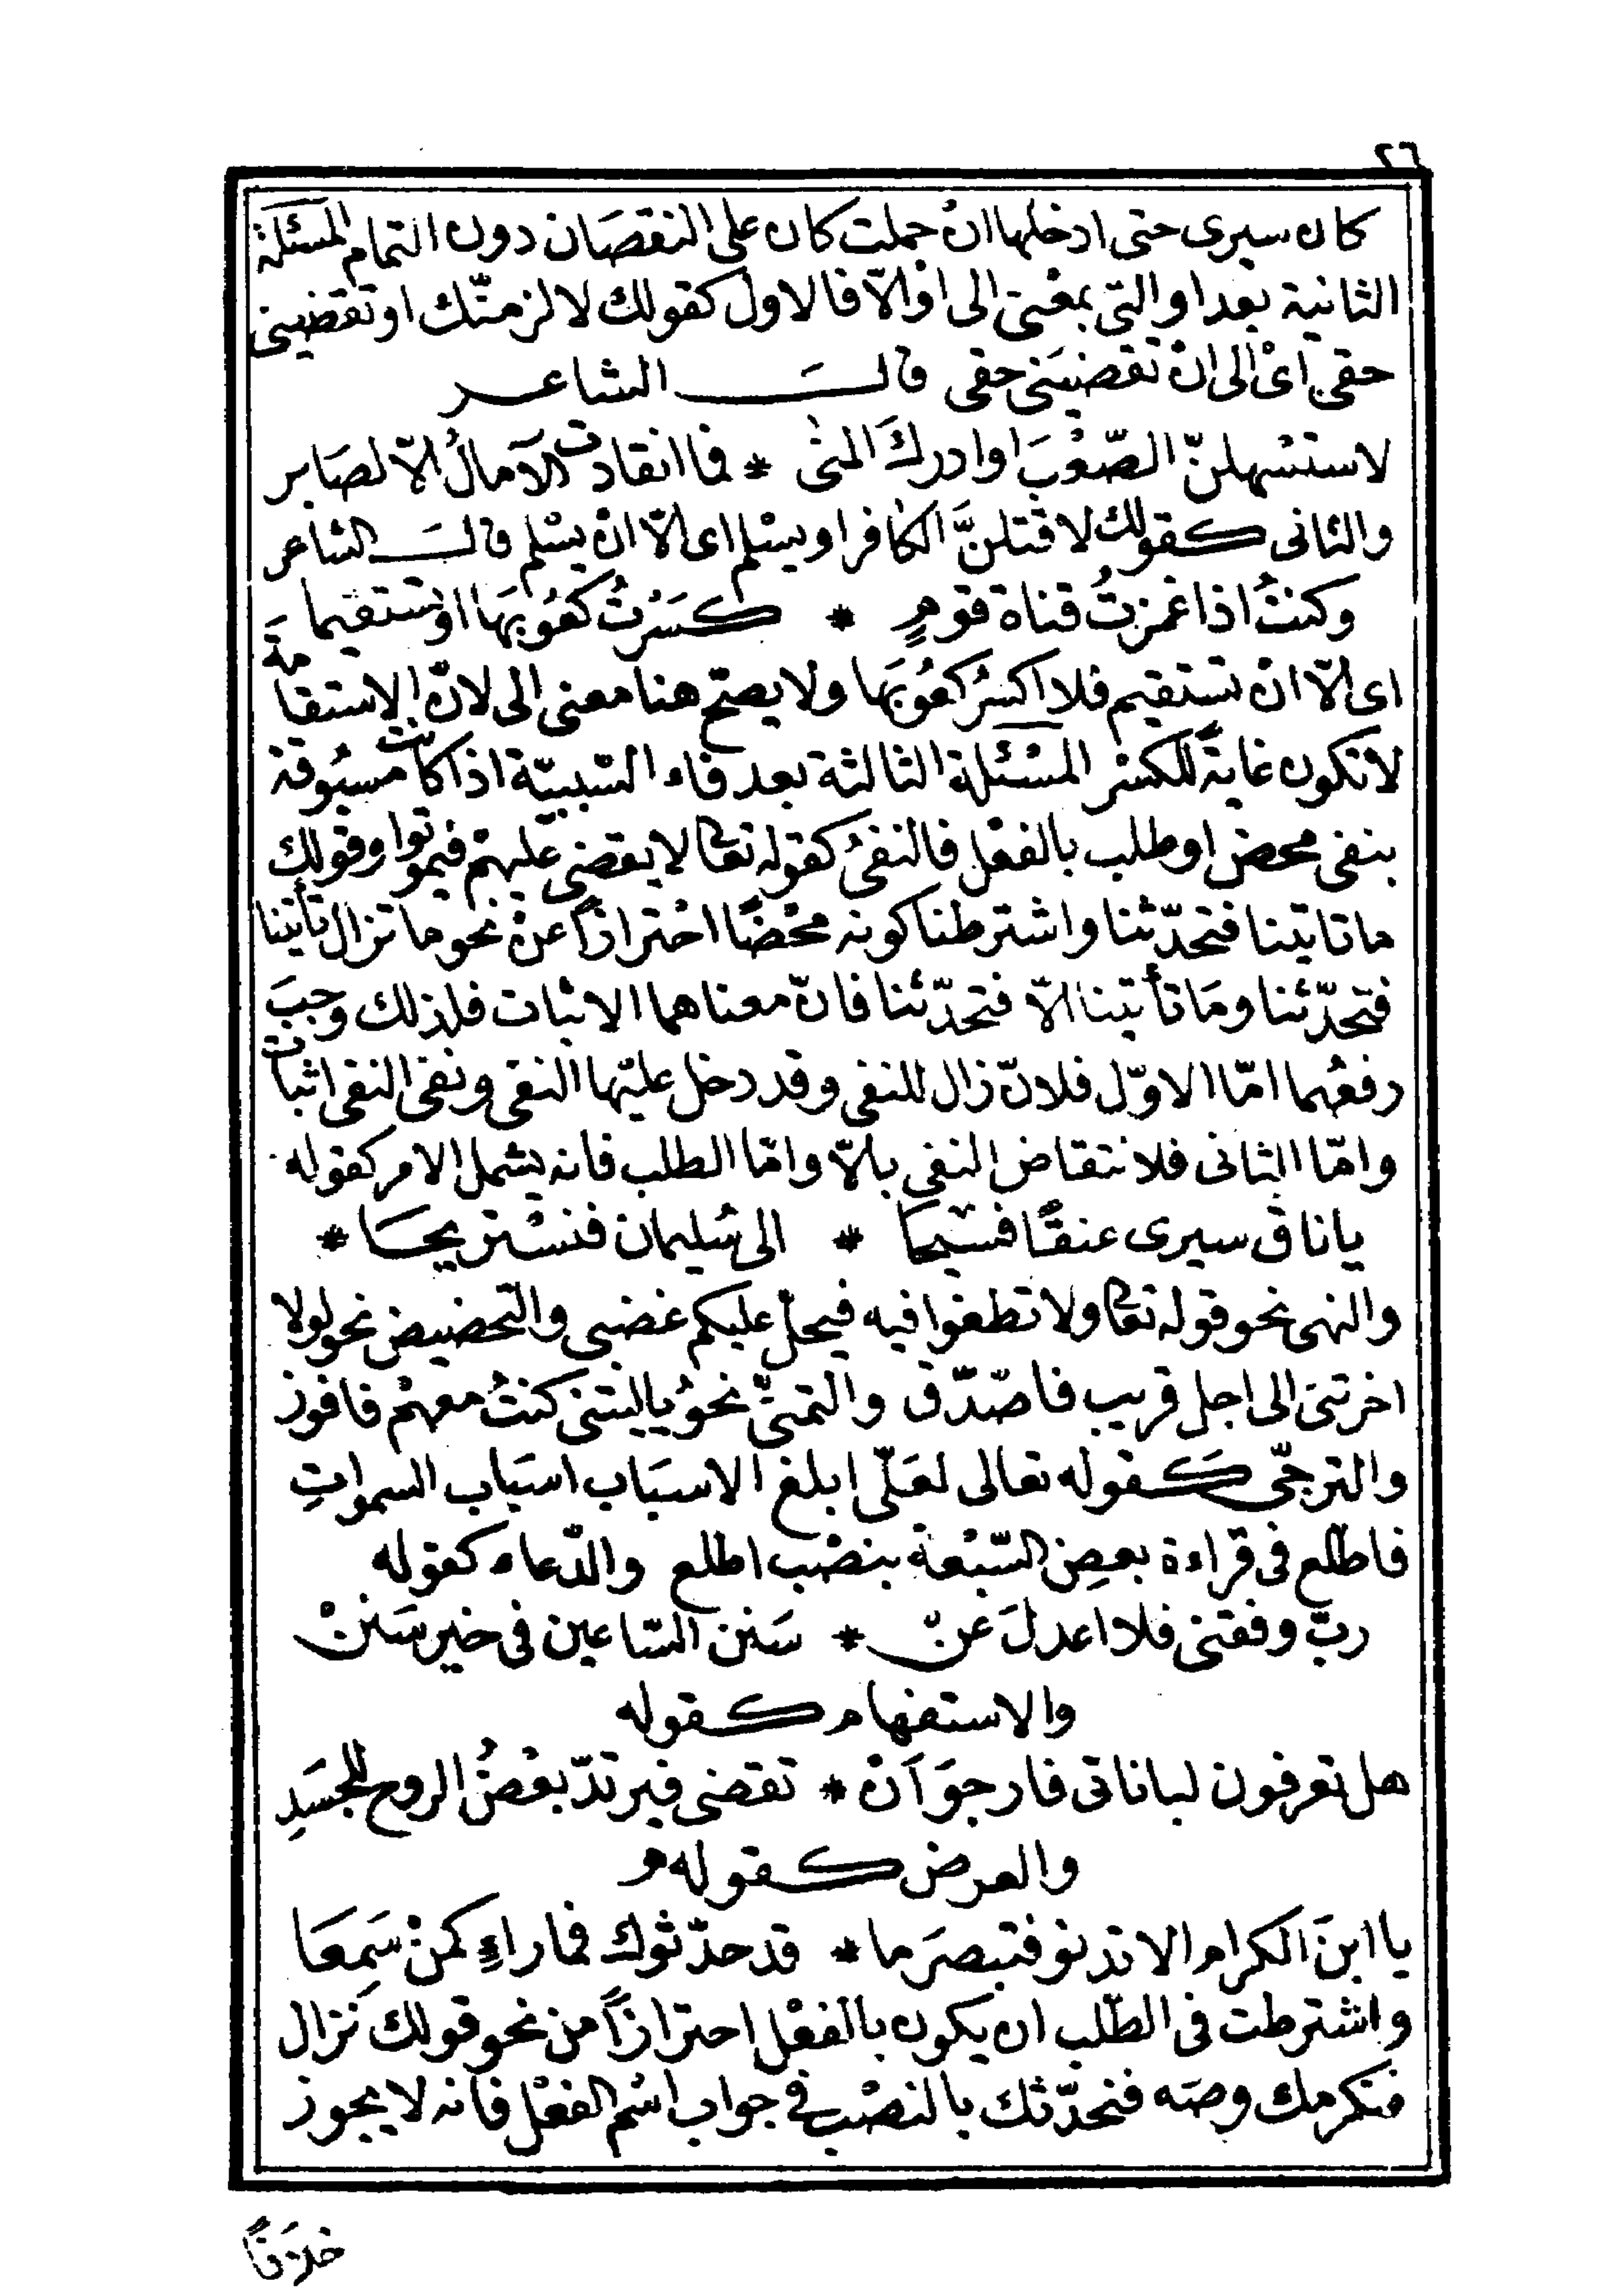 ٢٦
كان سيرى حتى ادخلها انْ حملت كان على النقصَان دون التمام المسئلة
الثانية بعد او التى بمعْنى الى اوْ الّا فالاول كقولك لالزمنّك او تقضينى
حقى اىْ الى انْ تقضيَنى حقى قالَ الشاعر
لاستسْهلنّ الصّعْبَ او ادركَ المنٰى * فما انقادت الآمالُ الّا لصَابر
والثانى كقولك لاقتلنَّ الكافر او يسْلم اى الّا انْ يسْلم قالَ الشاعر
وكنتُ اذا غمزتُ قناة قومٍ * كسَرْتُ كعُوبهَا اوْ تستقيما
اى الّا انْ تستقيم فلا اكسرُ كعُوبَها ولا يصحّ هنا معنى الى لانّ الاستقامَة
لا تكون غايةً للكسْر المسْئلة الثالثة بعد فاء السّببيّة اذا كانت مسبُوقة
بنفى محض او طلب بالفعْل فالنفىُ كقوله تعالى لا يقضى عليهمْ فيموتوا وقولك
ما تاتينا فتحدّثنا واشترطنا كونه محْضًا احْترازاً عنْ نحو ما تزال تأتينا
فتحدّثنا ومَا تأتينا الّا فتحدّثنا فانّ معناهما الاثبات فلذلك وجبَ
رفعُهما امّا الاوّل فلانّ زال للنفى وقد دخل عليْها النفى ونفى النفى اثبات
وامّا الثانى فلانتقاض النفى بالّا وامّا الطلب فانه يشمل الامر كقوله
يا ناق سيرى عنقًا فسيحًا * الى سُليمان فنسْتريحَا *
والنهى نحو قوله تعالى ولا تطغوا فيه فيحلّ عليكم غضبى والتحضيض نحو لولا
اخرتنى الى اجل قريب فاصّدّق والتمنّى نحوُ يا ليتنى كنتُ معهمْ فافوز
والترجّى كَقوله تعالى لعَلّى ابلغ الاسبَاب اسبَاب السمواتِ
فاطّلع فى قراءة بعضِ السّبْعة بنصْب اطلع والدّعاء كقوله
ربّ وفقنى فلا اعدلَ عنْ * سَنن السّاعين فى خير سَننْ
والاستفهام كقوله
هل تعرفون لباناتى فارجوَ انْ * تقضى فيرتدّ بعْضُ الروح للجسَدِ
والعرض كقوله
يا ابنَ الكرام الا تدنو فتبصرَ ما * قد حدّثوك فما راءٍ كمنْ سَمِعَا
واشترطت فى الطّلب ان يكون بالفعْل احترازاً من نحو قولك نزال
فنكرمك وصَه فنحدّثك بالنصْب فى جواب اسْم الفعْل فانه لا يجوز
خلافًا